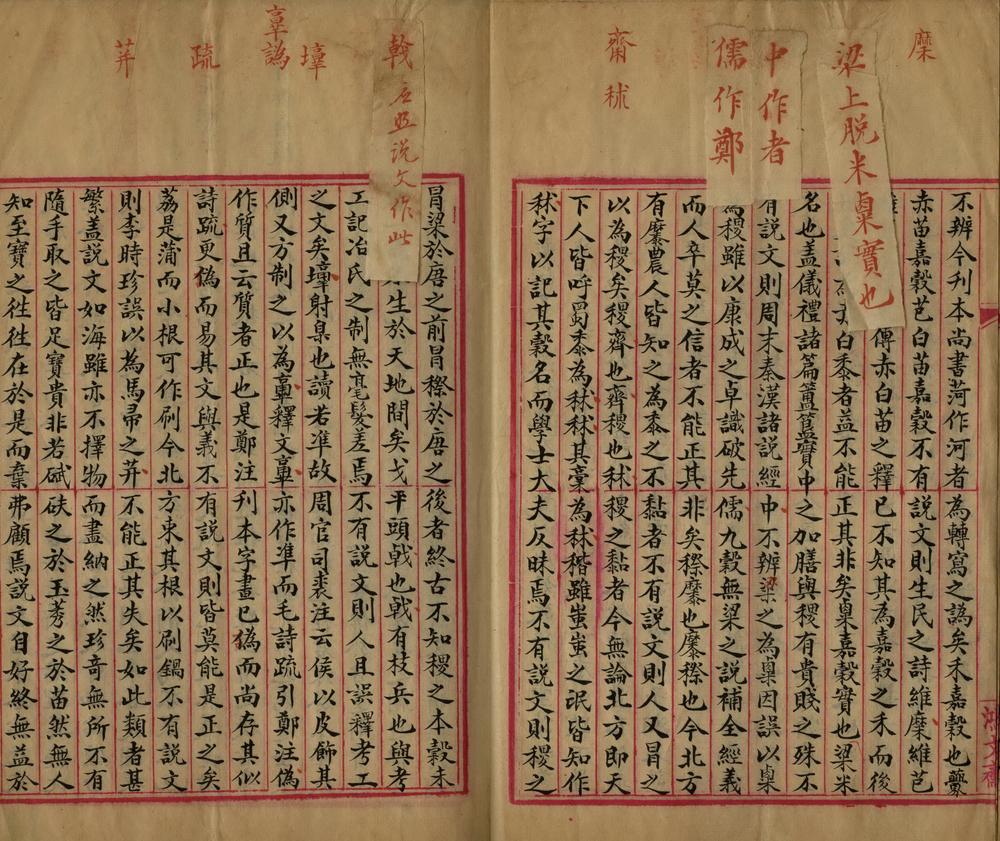 穈
梁上脱米㮚實也
中作者
儒作鄭
齋
秫
不辨今刋本尚書菏作河者為轉寫之譌矣禾嘉穀也虋
赤苗嘉穀芑白苗嘉穀不有說文則生民之詩維穈維芑
傳赤白苗之釋已不知其為嘉穀之禾而後
白黍者益不能正其非矣㮚嘉穀實也梁米
名也盖儀禮諸篇簠簋實中之加膳與稷有貴賤之殊不
有說文則周末秦漢諸說經中不辨梁之為㮚因誤以㮚
為稷雖以康成之卓識破先儒九穀無梁之說補全經義
而人卒莫之信者不能正其非矣穄䵚也䵚穄也今北方
有䵚農人皆知之為黍之不黏者不有說文則人又冒之
以為稷矣稷齋也齋稷也秫稷之黏者今無論北方即天
下人皆呼蜀黍為秫秫其稾為秫稭雖蚩蚩之氓皆知作
秫字以記其穀名而學士大夫反昧焉不有說文則稷之
戟
應照說文作此
墇
辜譌
疏
荓
冒梁於唐之前冒穄於唐之後者終古不知稷之本穀未
生於天地間矣戈平頭戟也戟有枝兵也與考
工記冶氏之制無毫髮差焉不有說文則人且誤釋考工
之文矣墇射臬也讀若凖故周官司裘注云侯以皮飾其
側又方制之以為辜釋文辜亦作凖而毛詩疏引鄭注偽
作質且云質者正也是鄭注刋本字畫已偽而尚存其似
詩疏更偽而易其文與義不有說文則皆莫能是正之矣
荔是蒲而小根可作刷今北方束其根以刷鍋不有說文
則李時珍誤以為馬帚之荓不能正其失矣如此類者甚
繁盖說文如海雖亦不擇物而畫納之然珍竒無所不有
隨手取之皆足寶貴非若碔砆之於玉莠之於苗然無人
知至寶之徃徃在於是而棄弗顧焉說文自好終無益於